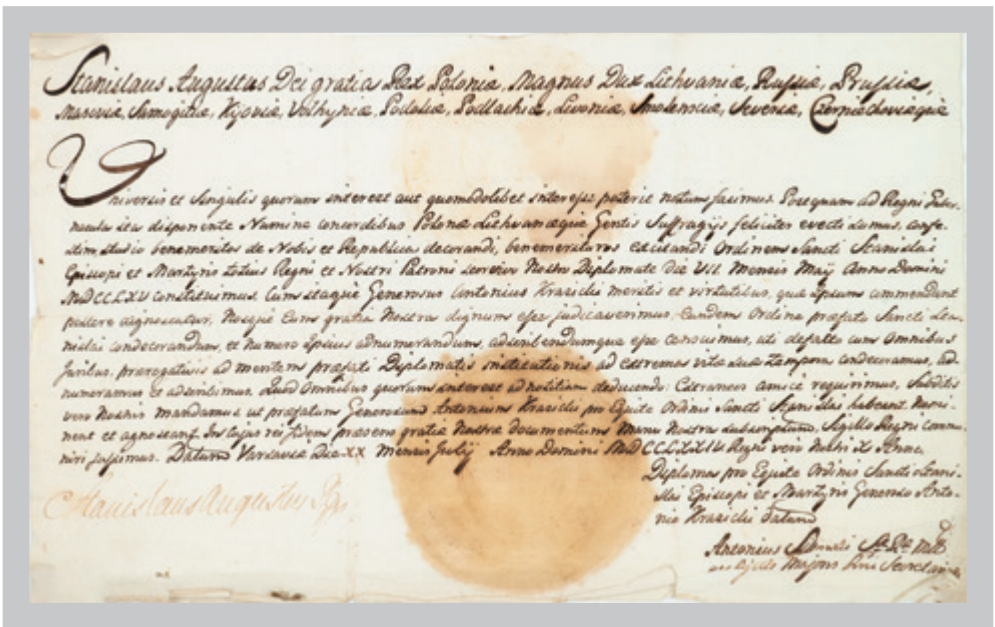 Stanislaus Augustus Dei gratia Rex Poloniæ, Magnus Dux Lithuaniæ, Russiæ, Prussiæ,
Masoviæ, Samogitiæ, Kijoviæ, Volhyniæ, Podoliæ, Podlachiæ, Livoniæ, Smolensciæ, Severiæ, Czerniechoviæque
Universis et Singulis quorum interest aut quomodolibet interesse poterit notum facimus. Postquam ad Regni
ita disponente Numine concordibus Polonæ Lithuanæque Gentis Suffragijs feliciter evecti sumus,
studio benemeritos de Nobis et Republica decorandi, benemerituros excitandi Ordinem Sancti Stanislai
Episcopi et Martyris totius Regni et Nostri Patroni Nostro Diplomate Die VII Mensis Maij Anno Domini
MDCCLXV constituimus. Cum itaque Generosus Antonius Krasicki meritis et virtutibus, quæ Ipsum commendant
pollere dignoscatur, Nosque Eum gratia Nostra dignum esse judicaverimus. Eundem Ordine præfato Sancti Sta-
nislai condecorandum, et numero Ipsius adnumerandum, adscribendumque esse censuimus, uti defacto cum Omnibus
Juribus, prærogativis ad mentem præfati Diplomatis institutionis ad extrema vitæ suæ tempora condecoramus, ad-
numeramus et adscribimus. Quod Omnibus quorum interest ad notitiam deducendo. Extraneos amice requirimus, Subditis
vero Nostris mandamus ut præfatum Generosum Antonium Krasicki pro Equite Ordinis Sancti Stanislai habeant
nent et agnoscant. In Cujus rei fidem præsens gratiæ Nostræ documentum Manu Nostra subscriptum, Sigillo Regni commu-
niri jussimus. Datum Varsaviæ Die XX Mensis Julij Anno Domini MDCCLXXIV Regni vero Nostri X Anno
Diploma pro Equite Ordinis Sancti Stani-
slai Episcopi et Martyris Generoso Anto-
nio Krasicki datum
Stanislaus Augustus Rex
Antonius
Majoris